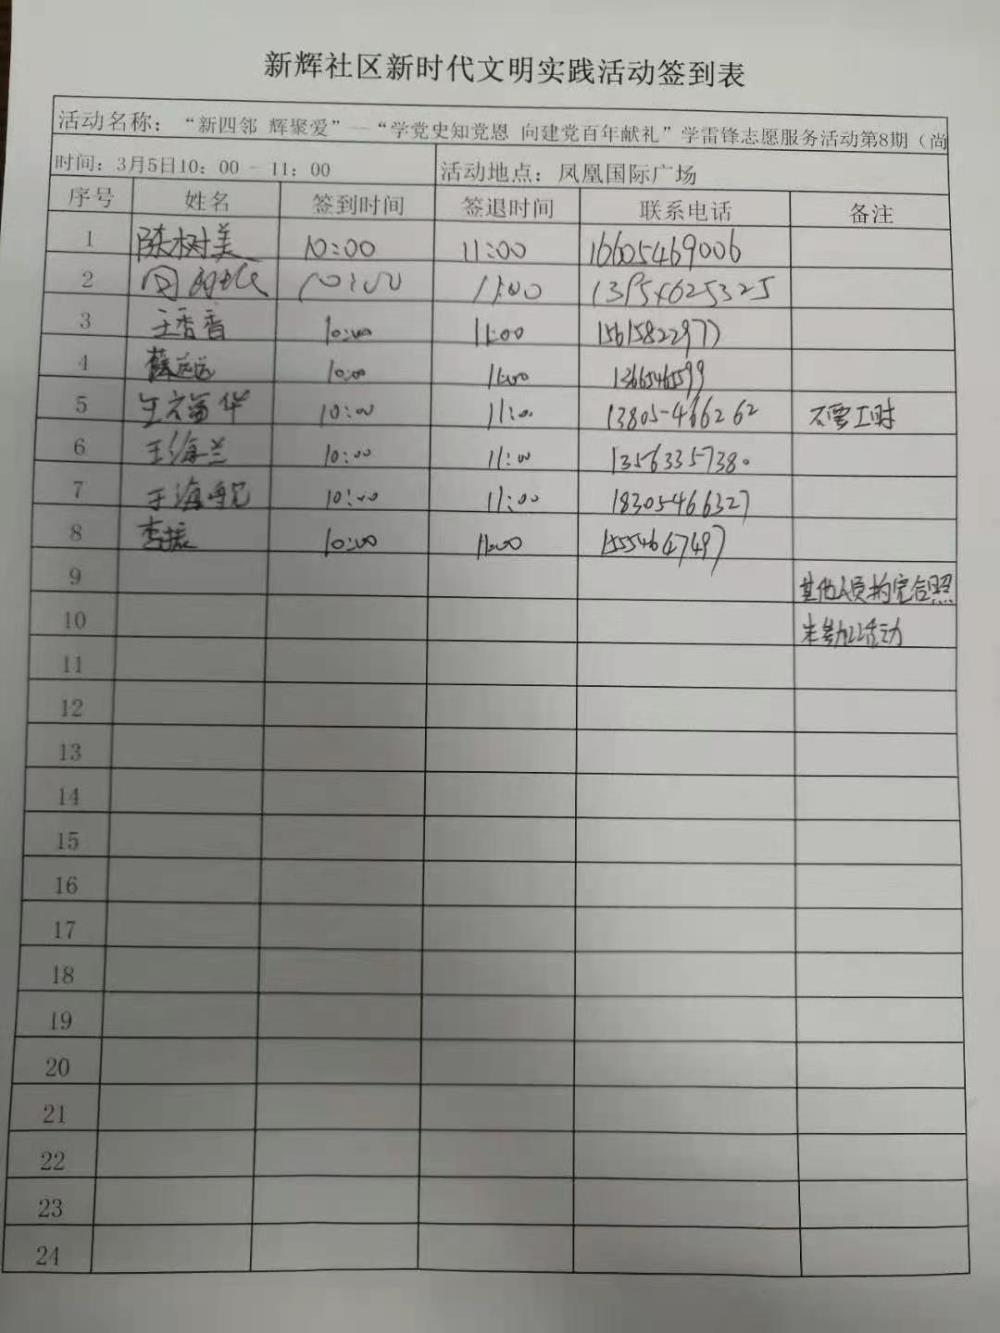 新辉社区新时代文明实践活动签到表
活动名称：“新四邻 辉聚爱”—“学党史知党恩 向建党百年献礼”学雷锋志愿服务活动第8期（尚
时间：3月5日10：00 - 11：00 活动地点：凤凰国际广场
序号 姓名 签到时间 签退时间 联系电话 备注
1 陈树美 10:00 11:00 16605469006
2 10:00 11:00 13954625325
3 王香香 10:00 11:00 15615822977
4 薛远远 10:00 11:00 13665465599
5 生富华 10:00 11:00 13805466262 不要工时
6 王海兰 10:00 11:00 13563357380
7 于海 10:00 11:00 18305466327
8 李振 10:00 11:00 15554647497
9 其他人员拍完合照
10 未参加活动
11
12
13
14
15
16
17
18
19
20
21
22
23
24